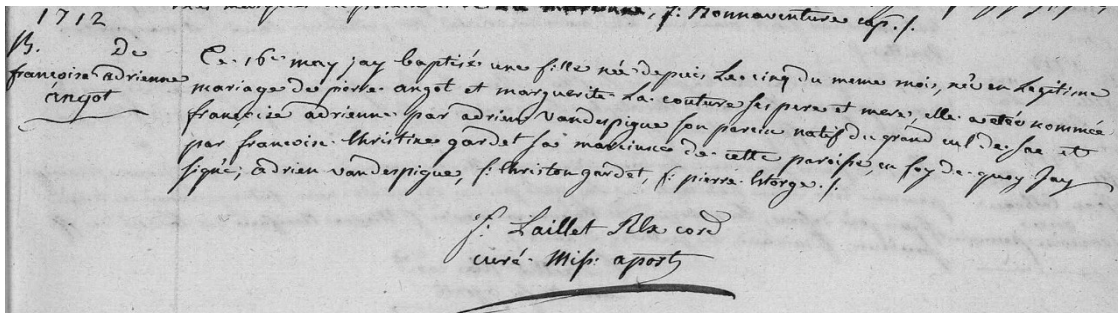 1712
f. Bonnaventure cap. f.
B. De
françoise adrienne
angot
Ce 16e. may jay baptisé une fille née depuis Le cinq du meme mois, née en Legitime
mariage de pierre angot et marguerite La couture ses pere et mere, elle a etée nommée
françoise adrienne par adrien Vanderpigue son parein natif du grand cul de sac et
par françoise Christine gardet sa mareinne de cette paroisse, en foy de quoy Jay
signé; adrien vanderpigue, f. Christon gardet, f. pierre
f. Laillet Rlx cord
curé Miss. apost